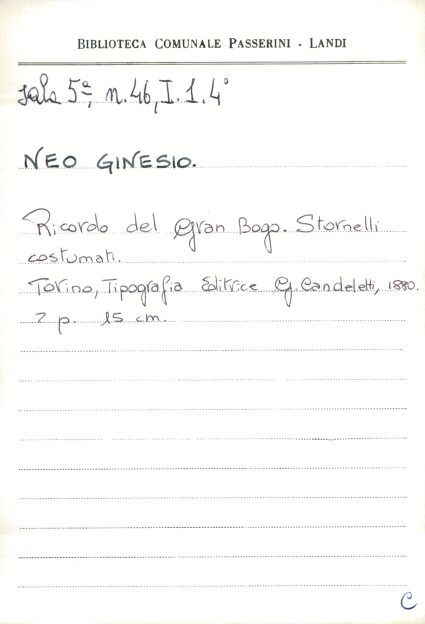 BIBLIOTECA COMUNALE PASSERINI - LANDI
sala 5ª, n. 46, I. 1. 4°
NEO GINESIO.
Ricordo del Gran Bogo. Stornelli
costumati.
Torino, Tipografia Editrice G. Candeletti, 1880.
7 p. 15 cm.
C